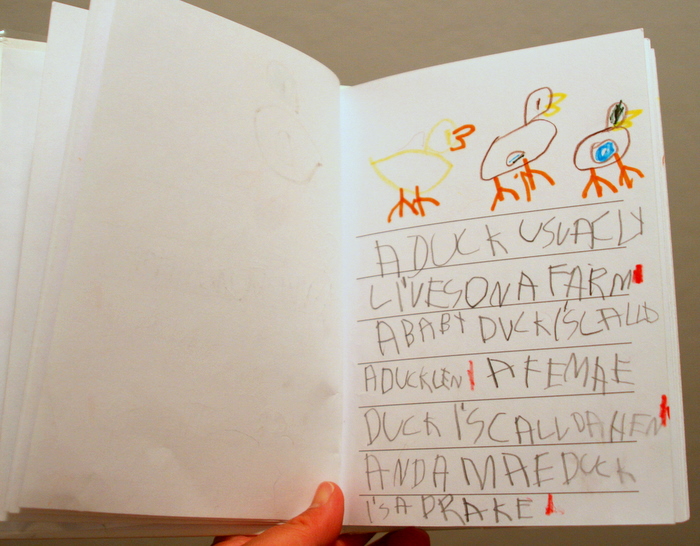 A DUCK USUAELY
LIVES ON A FARM
A BABY DUCK I'S CALLD
A DUCKLEN A FEMAE
DUCK I'S CALLD A HEN
AND A MAE DUCK
I'S A DRAKE